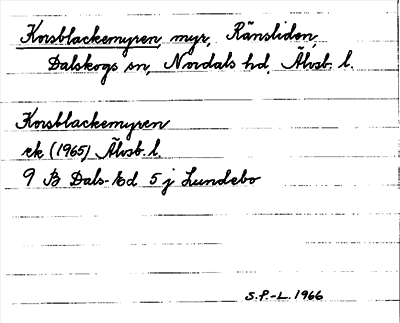 Korsblackemyren, myr, Ränsliden,
Dalskogs sn, Nordals hd, Älvsb. l.
Korsblackemyren
ek (1965) Älvsb. l.
9 B Dals-Ed 5 j Lundebo
S.F.-L. 1966